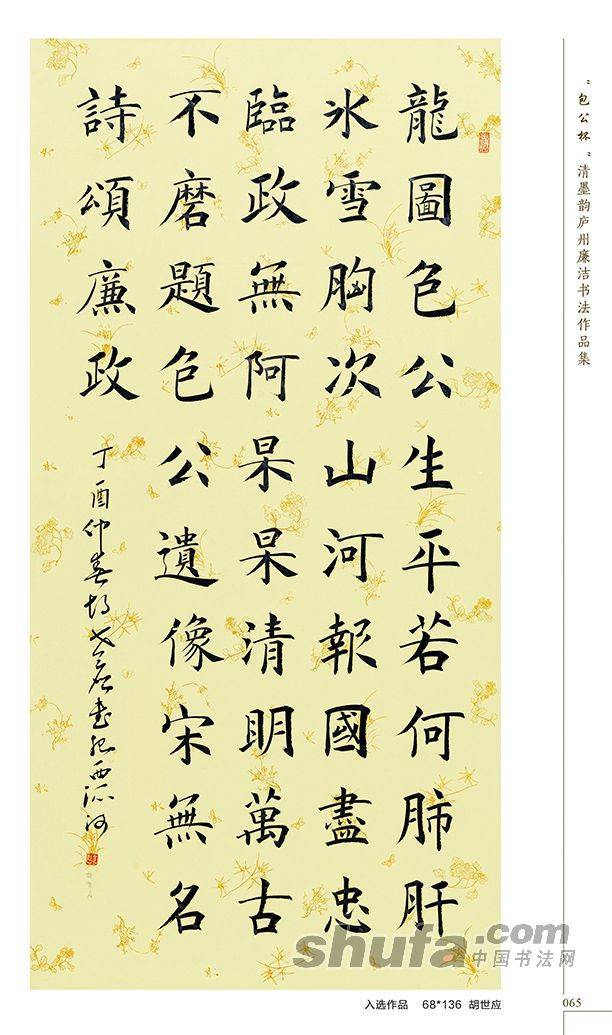 “包公杯”清墨韵庐州廉洁书法作品集
龍圖包公生平若何肺肝
氷雪胸次山河報國盡忠
臨政無阿杲杲清明萬古
不磨題包公遺像宋無名
詩頌廉政
丁酉仲春胡世應書於西河
shufa.com
中国书法网
入选作品 68*136 胡世应
065